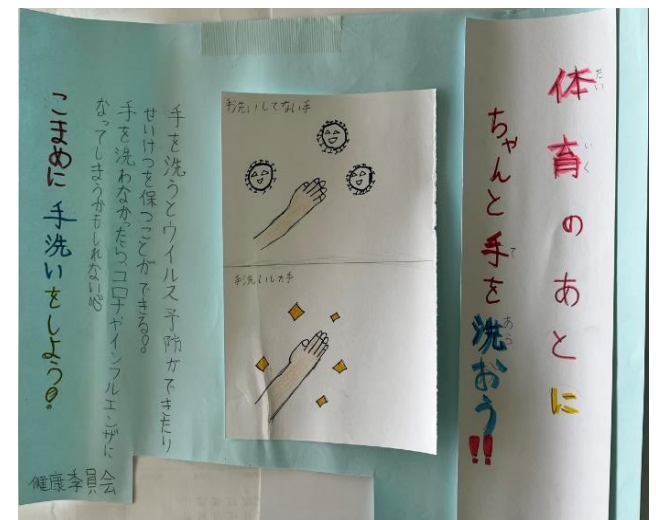 体育のあとに
たい
いく
ちゃんと手を洗おう!!
て
あら
手洗いしてない手
手洗いした手
手を洗うとウイルス予防ができたり
せいけつを保つことができる。
手を洗わなかったら、コロナやインフルエンザに
なってしまうかもしれない
こまめに手洗いをしよう
健康委員会